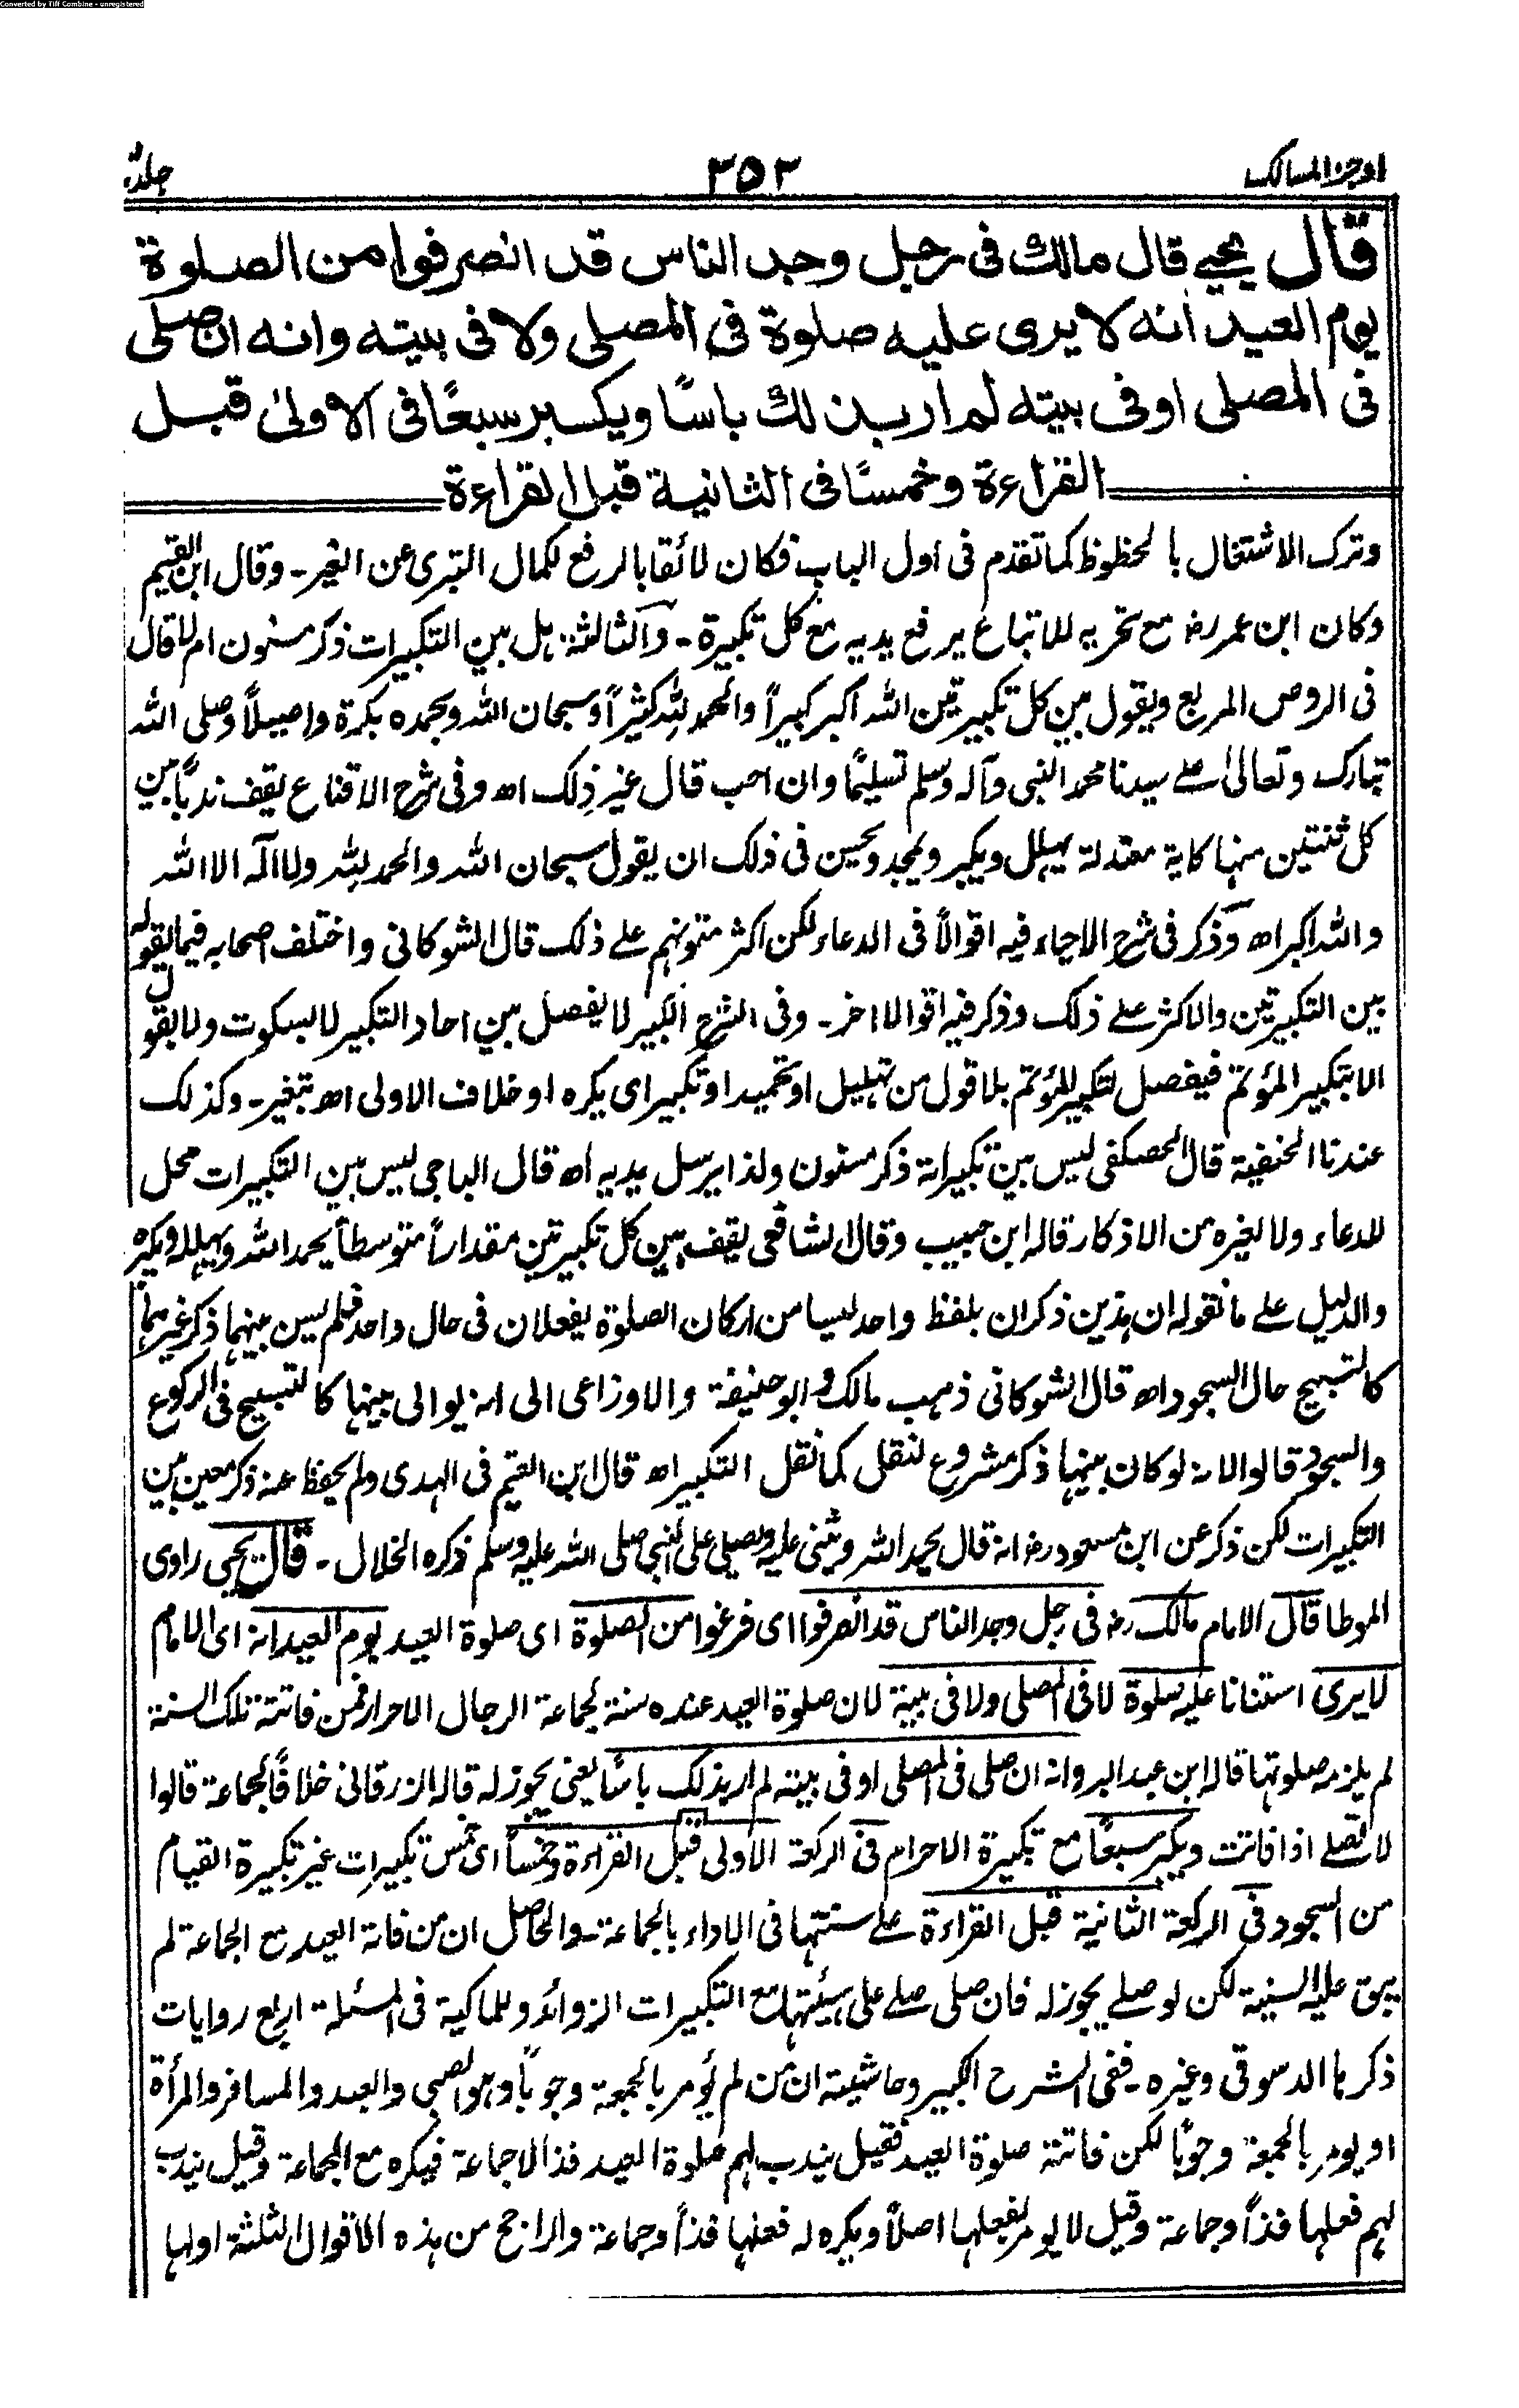 Converted by Tiff Combine - unregistered
اوجز المسالك
٣٥٢
جلد
قال يحيى قال مالك فى رجل وجد الناس قد انصرفوا من الصلوة
يوم العيد انه لا يرى عليه صلوة فى المصلى ولا فى بيته وانه ان صلى
فى المصلى او فى بيته لم ار بذلك باسًا ويكبر سبعًا فى الاولىٰ قبل
القراءة وخمسًا فى الثانية قبل القراءة
وترك الاشتغال بالحظوظ كما تقدم فى اول الباب فكان لائقا بالرفع لكمال التبرى عن الغير۔ وقال ابن القيم
وكان ابن عمر رضـ مع تحريه للاتباع يرفع يديه مع كل تكبيرة۔ والثالثة هل بين التكبيرات ذكر مسنون ام لا قال
فى الروض المربع ويقول بين كل تكبيرتين الله اكبر كبيراً والحمد لله كثيراً وسبحان الله وبحمده بكرة واصيلاً وصلى الله
تبارك وتعالىٰ على سيدنا محمد النبى وآله وسلم تسليمًا وان احب قال غير ذلك اھ وفى شرح الاقناع يقف ندبًا بين
كل ثنتين منها كاية معتدلة يهلل ويكبر ويمجد ويحسن فى ذلك ان يقول سبحان الله والحمد لله ولا اله الا الله
والله اكبر اھ وذكر فى شرح الاحياء فيه اقوالاً فى الدعاء لكن اكثر متونهم على ذلك قال الشوكانى واختلف اصحابه فيما يقوله
بين التكبيرتين والاكثر على ذلك وذكر فيه اقوالا اخر۔ وفى الشرح الكبير لا يفصل بين احاد التكبير لا بسكوت ولا بقول
الا بتكبير المؤتم فيفصل لتكبير المؤتم بلا قول من تهليل او تحميد او تكبير اى يكره او خلاف الاولى اھ بتغير۔ وكذلك
عندنا الحنفية قال الحصكفى ليس بين تكبيراته ذكر مسنون ولذا يرسل يديه اھ قال الباجى ليس بين التكبيرات محل
للدعاء ولا لغيره من الاذكار قاله ابن حبيب وقال الشافعى يقف بين كل تكبيرتين مقداراً متوسطاً يحمد الله ويهلله ويكبره
والدليل على ما نقوله ان هذين ذكران بلفظ واحد ليسا من اركان الصلوة يفعلان فى حال واحد فلم يسن بينهما ذكر غيرهما
كالتسبيح حال السجود اھ قال الشوكانى ذهب مالك وابو حنيفة والاوزاعى الى انه يوالى بينها كالتسبيح فى الركوع
والسجود قالوا لانه لو كان بينها ذكر مشروع لنقل كما نقل التكبير اھ قال ابن القيم فى الهدى ولم يحفظ عنه ذكر معين بين
التكبيرات لكن ذكر عن ابن مسعود رضـ انه قال يحمد الله ويثنى عليه ويصلى على النبى صلى الله عليه وسلم ذكره الخلال۔ قال يحيى راوى
الموطا قال الامام مالك رضـ فى رجل وجد الناس قد انصرفوا اى فرغوا من الصلوة اى صلوة العيد يوم العيد انه اى الامام
لا يرى استنانا عليه صلوة لا فى المصلى ولا فى بيته لان صلوة العيد عنده سنة لجماعة الرجال الاحرار فمن فاتته تلك السنة
لم يلزمه صلوتها قاله ابن عبد البر وانه ان صلى فى المصلى او فى بيته لم ار بذلك باسًا يعنى يجوز له قاله الزرقانى خلافًا لجماعة قالوا
لا تصلى اذا فاتت ويكبر سبعًا مع تكبيرة الاحرام فى الركعة الاولى قبل القراءة وخمساً اى خمس تكبيرات غير تكبيرة القيام
من السجود فى الركعة الثانية قبل القراءة على سنتها فى الاداء بالجماعة۔ والحاصل ان من فاتة العيد مع الجماعة لم
يبق عليه السنية لكن لو صلى يجوز له فان صلى صلى على هيئتها مع التكبيرات الزوائد وللمالكية فى المسئلة اربع روايات
ذكرها الدسوقى وغيره۔ ففى الشرح الكبير وحاشيته ان من لم يؤمر بالجمعة وجوباً وهو الصبى والعبد والمسافر والمرأة
او يومر بالجمعة وجوبًا لكن فاتته صلوة العيد فقيل يندب لهم صلوة العيد فذا لا جماعة فيكره مع الجماعة وقيل يندب
لهم فعلها فذاً وجماعة وقيل لا يومر بفعلها اصلاً ويكره له فعلها فذاً وجماعة والراجح من هذه الاقوال الثلثة اولها